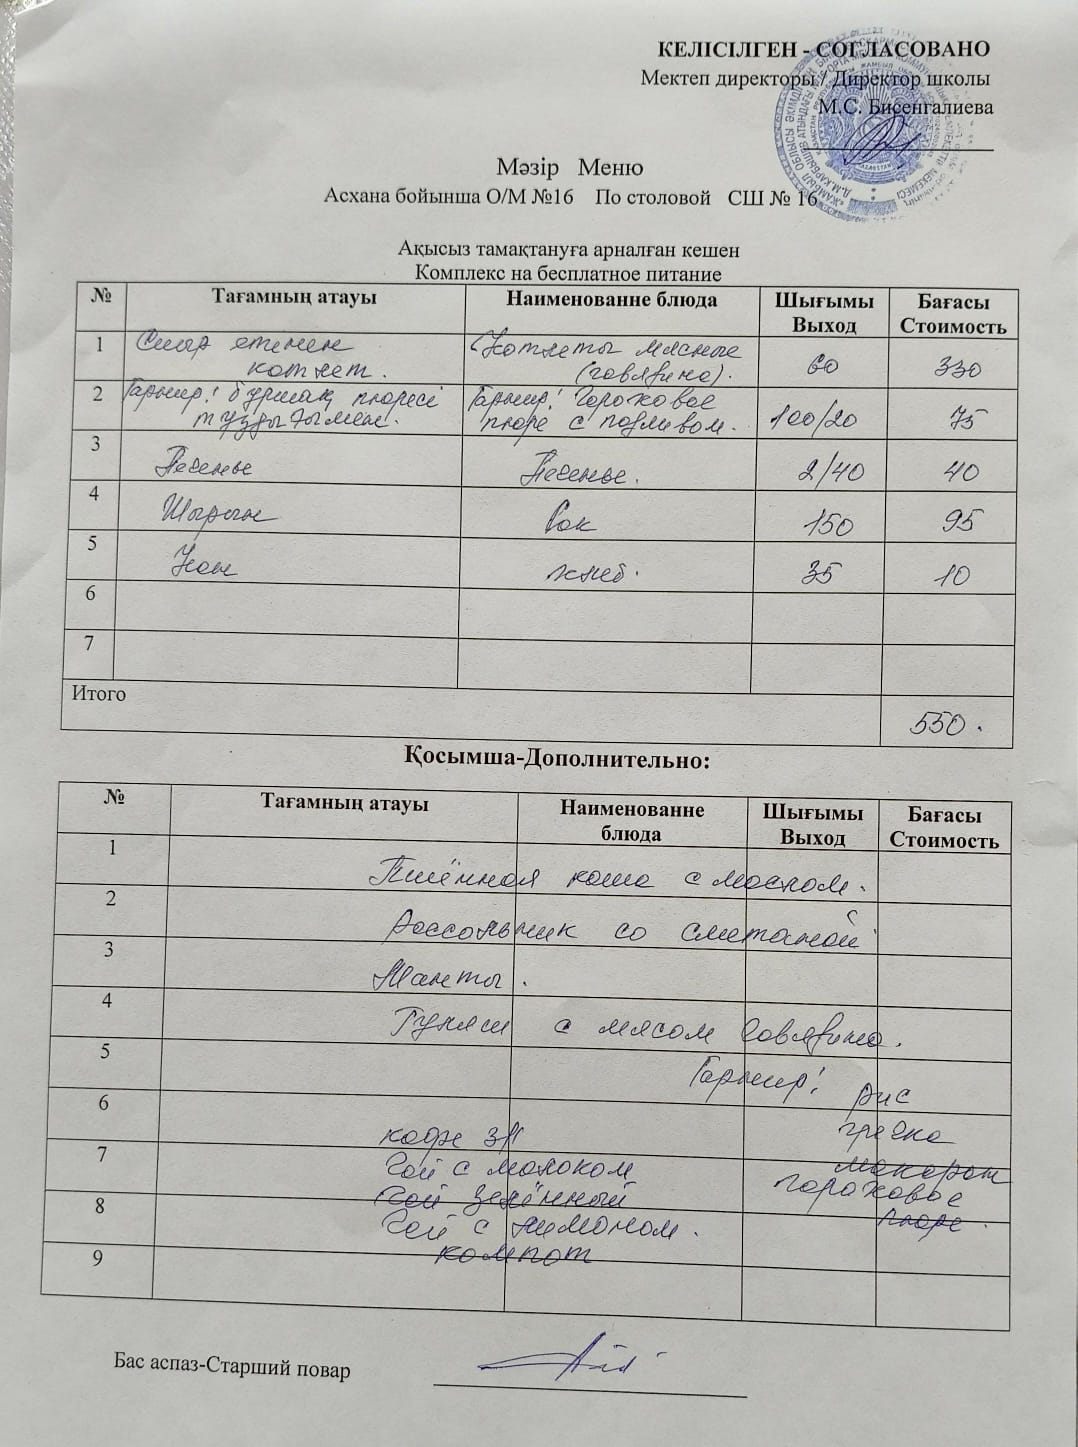 КЕЛІСІЛГЕН - СОГЛАСОВАНО
Мектеп директоры / Директор школы
М.С. Бисенгалиева
Мәзір Меню
Асхана бойынша О/М №16 По столовой СШ № 16
Ақысыз тамақтануға арналған кешен
Комплекс на бесплатное питание
№ Тағамның атауы Наименованне блюда Шығымы Выход Бағасы Стоимость
1 Сиыр етінен котлет. Котлеты мясные (говядина). 60 330
2 Гарнир: бұршақ пюресі тұздығымен. Гарнир: Гороховое пюре с подливом. 100/20 75
3 Печенье Печенье. 2/40 40
4 Шырын Сок 150 95
5 Нан хлеб. 35 10
6
7
Итого
550.
Қосымша-Дополнительно:
№ Тағамның атауы Наименованне блюда Шығымы Выход Бағасы Стоимость
1 Пшённая каша с маслом.
2 Рассольник со сметаной
3 Манты.
4 Гуляш с мясом говядина.
5 Гарнир: рис
6 кофе 3/1 гречка
7 Чай с молоком макароны
Чай зелённый гороховое
8 Чай с лимоном. пюре.
компот
9
Бас аспаз-Старший повар